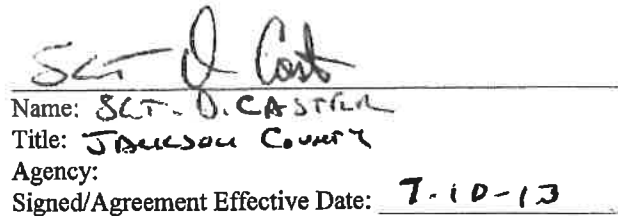 SGT D Cast
Name: SGT. D. CASTER
Title: JACKSON COUNTY
Agency:
Signed/Agreement Effective Date: 7-10-13